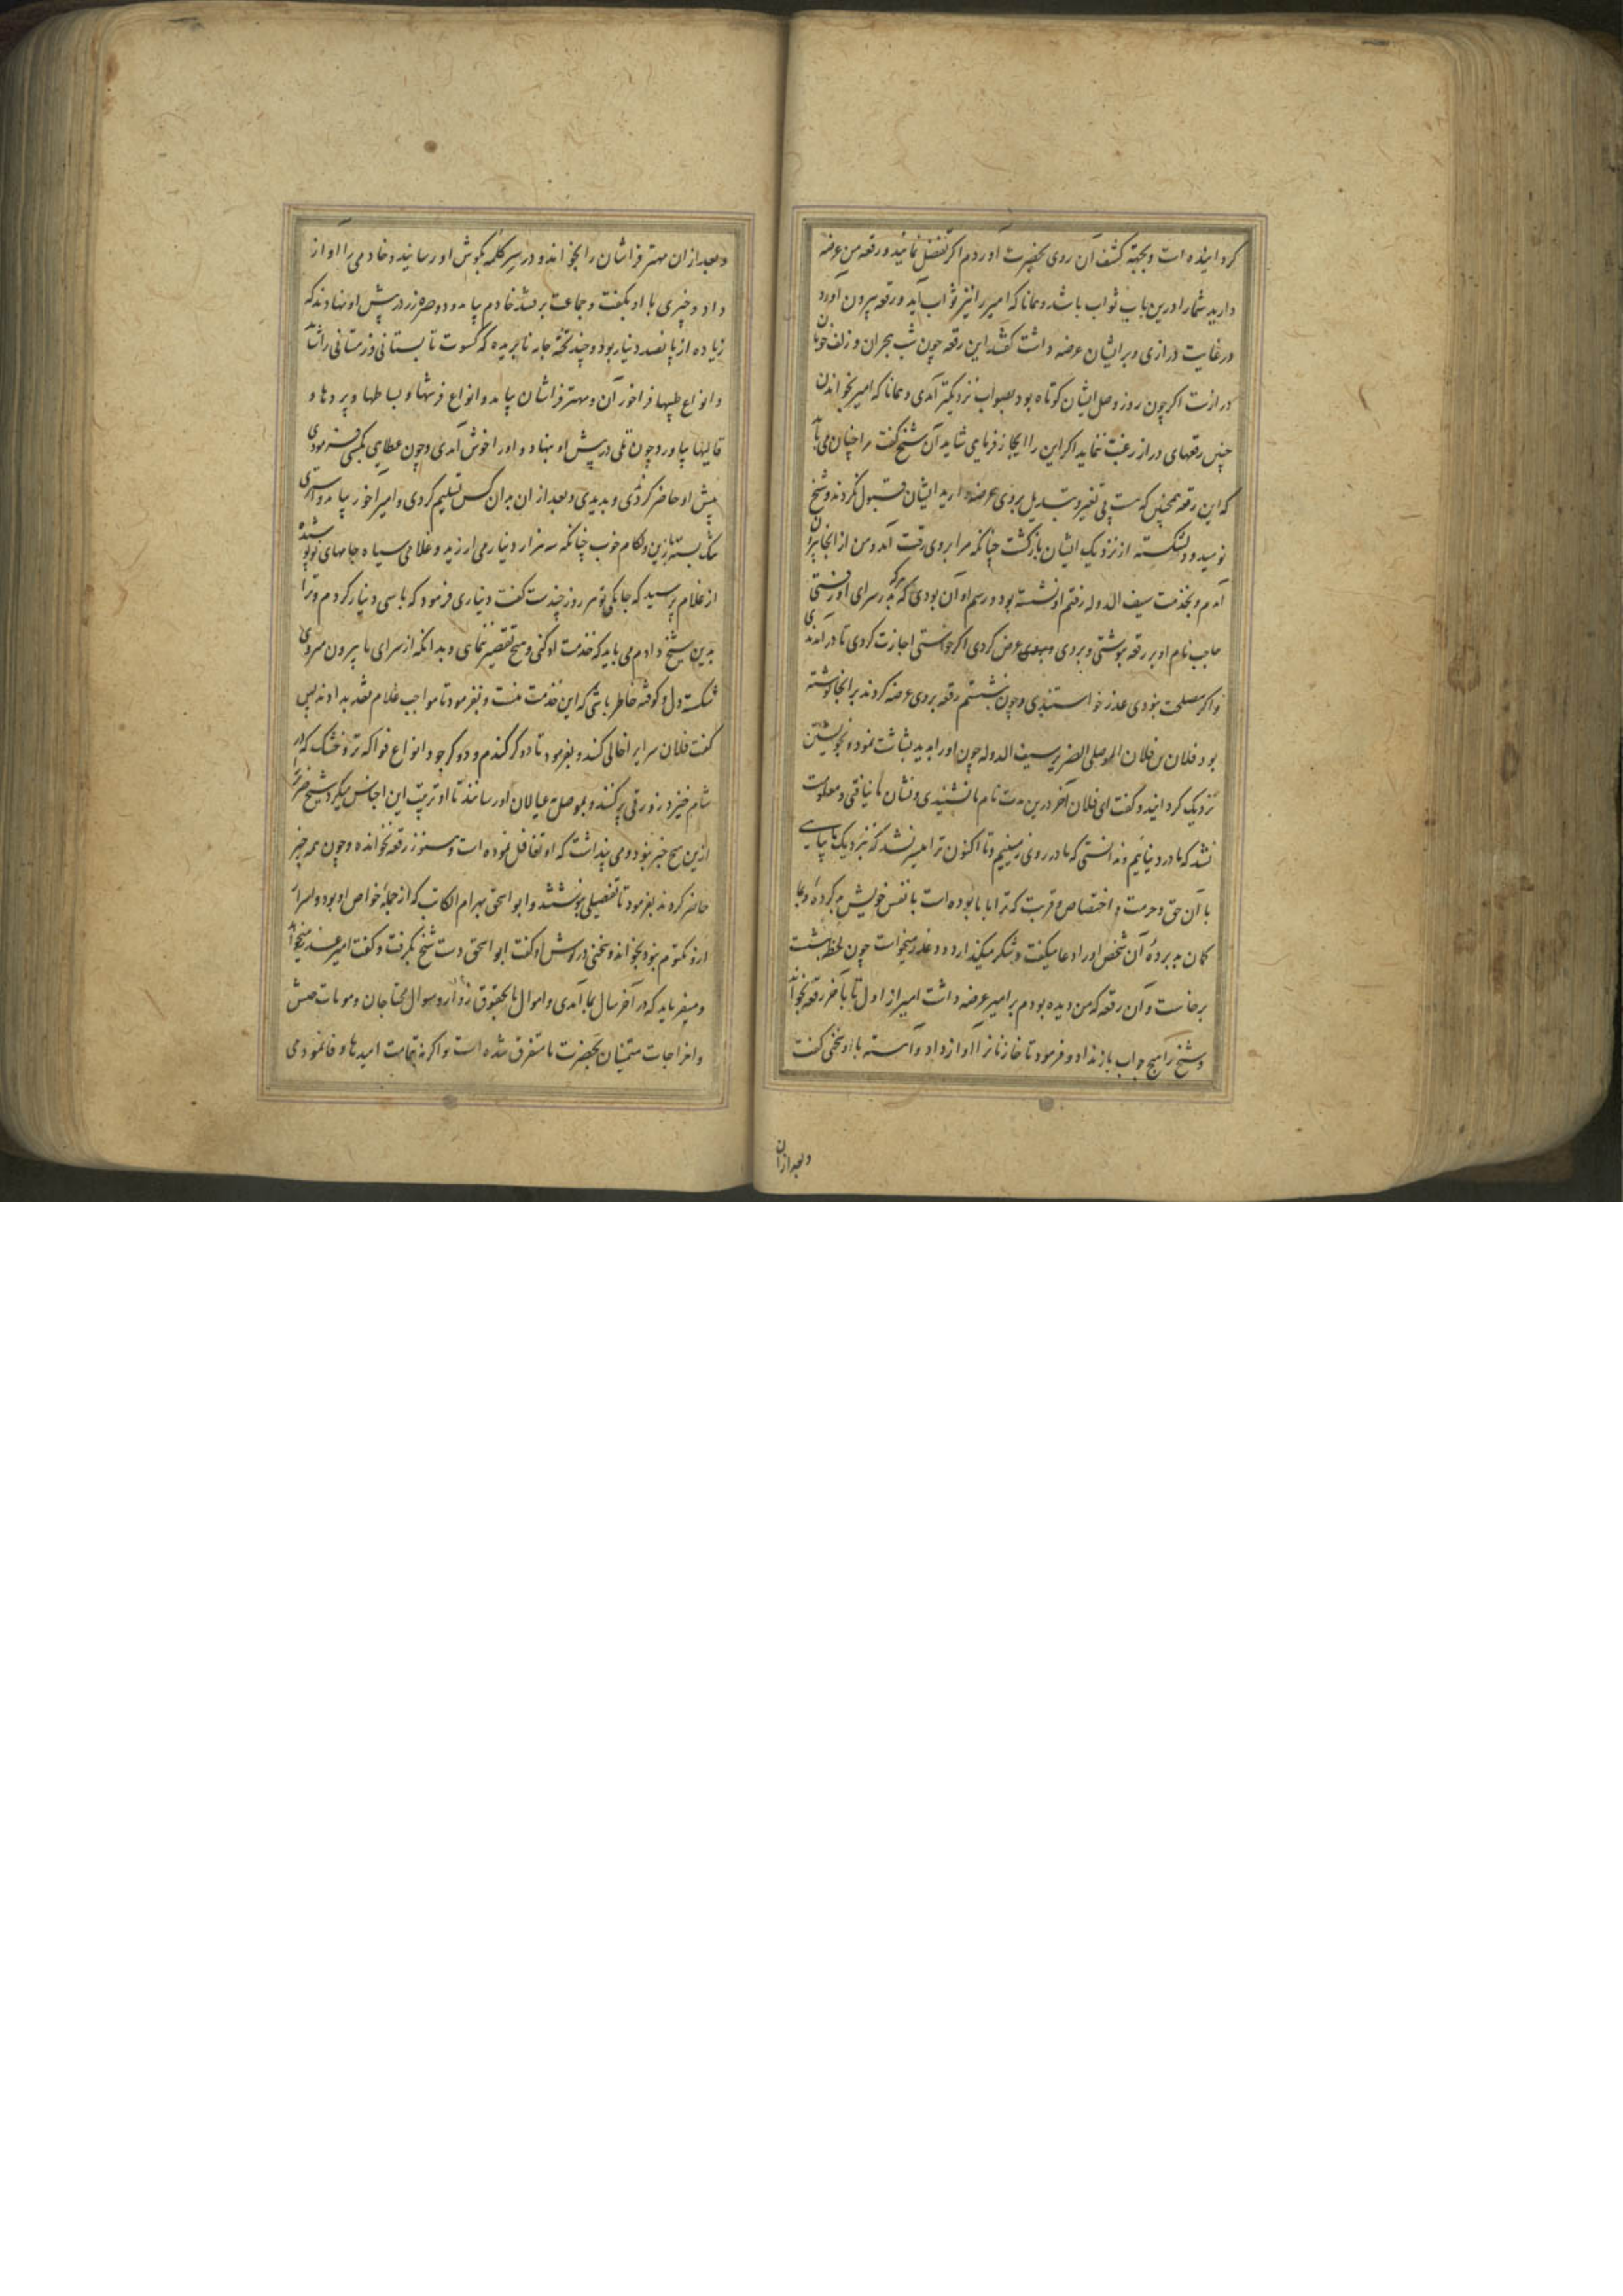 گردانیده است و بجهة کشف آن روی بحضرت آوردم اگر تفضل نمائید و رقعه من عرضه
دارید شما را درین باب ثواب باشد و همانا که امیر را نیز ثواب آید و رقعه بیرون آورد
در غایت درازی و بر ایشان عرضه داشت گفتند این رقعه چون شب هجران و زلف خوبان
درازست اگر چون روز وصل ایشان کوتاه بود بصواب نزدیکتر آمدی و همانا که امیر بخواندن
چنین رقعهای دراز رغبت ننماید اگر این را ایجاز فرمایی شاید آن شیخ گفت مرا چنان می باید
که این رقعه همچنین که هست بی تغیر و تبدیل بروی عرضه دارید ایشان قبول نکردند و شیخ
نومید و دلشکسته از نزدیک ایشان بازگشت چنانکه مرا بروی رقت آمد و من از آنجا بیرون
آمدم و بخدمت سیف الدوله رفتم او نشسته بود و رسم او آن بودی که هر که بدر سرای او رفتی
حاجب نام او بر رقعه نوشتی و بروی عرض کردی اگر خواستی اجازت کردی تا درآمدندی
و اگر مصلحت نبودی عذر خواستندی و چون بنشستم رقعه بروی عرضه کردند بر آنجا نوشته
بود فلان بن فلان الموصلی الضریر سیف الدوله چون او را بدید بشاشت نمود و بخویشتن
نزدیک گردانید و گفت ای فلان آخر درین مدت نام ما نشنیدی و نشان ما نیافتی و معلومت
نشد که ما در دنیائیم و ندانستی که ما در روی زمینیم و تا اکنون ترا میسر نشد که نزدیک ما بیایی
با آن حق و حرمت و اختصاص و قربت که ترا با ما بوده است با نفس خویش بد کرده و بما
گمان بد برده آن شخص او را دعا میگفت و شکر میگذارد و عذر میخواست چون لحظه بنشست
برخاست و آن رقعه که من دیده بودم بر امیر عرضه داشت امیر از اول تا بآخر رقعه بخواند
و شیخ را هیچ جواب باز نداد و فرمود تا خازنانرا آواز داد و آهسته با او سخنی گفت
وبعد ازان
وبعد ازان مهتر فراشان را بخواند و در سر کلمه بگوش او رسانید و خادمی را آواز
داد و چیزی با او بگفت و جماعت برفتند خادم بیامد و دو صره زر در پیش او نهادند که
زیاده از پانصد دینار بود و چند تخته جامه نابریده که کسوت تابستانی و زمستانی را شاید
و انواع طیبها فراخور آن و مهتر فراشان بیامد و انواع فرشها و بساطها و پردها و
قالیها بیاورد چون تلی در پیش او بنهاد و او را خوش آمدی و چون عطایی بکسی فرمودی
پیش او حاضر کردی و بدیدی و بعد ازان بدان کس تسلیم کردی و امیر آخور بیامد و استری
تنگ بسته با زین و لگام خوب چنانکه سه هزار دینار می ارزید و غلامی سیاه جامهای نو پوشیده
از غلام پرسید که جامکی تو هر روز چندست گفت دیناری فرمود که با سی دینار کردم و ترا
بدین شیخ دادم می باید که خدمت او کنی و هیچ تقصیر ننمای و بدانکه از سرای ما بیرون میروی
شکسته دل و کوفته خاطر باشی که این خدمت منست و بفرمود تا مواجب غلام نقد بدادند پس
گفت فلان سرا برا خالی کنند و بفرمود تا دو کر گندم و دو کر جو و انواع فواکه تر و خشک که در
شام خیزد در زورقی پر کنند و بموصل بعیالان او رسانند تا او ترتیب این اجناس میکرد شیخ ضریر
ازین هیچ خبر نبود و می پنداشت که او تغافل نموده است و هنوز رقعه نخوانده و چون همه چیز
حاضر کردند بفرمود تا تفصیلی بنوشتند و ابو اسحق بهرام الکاتب که از جمله خواص او بود و اسرار
ازو مکتوم نبود بخواند و سخنی در گوش او گفت ابو اسحق دست شیخ بگرفت و گفت امیر عذر میخواهد
و میفرماید که در آخر سال بما آمدی و اموال ما بحقوق زوار و سوال محتاجان و مونات جیش
و اخراجات متمنیان بحضرت ما متفرق شده است و اگر نه بتمامت امیدها وفا نمودمی